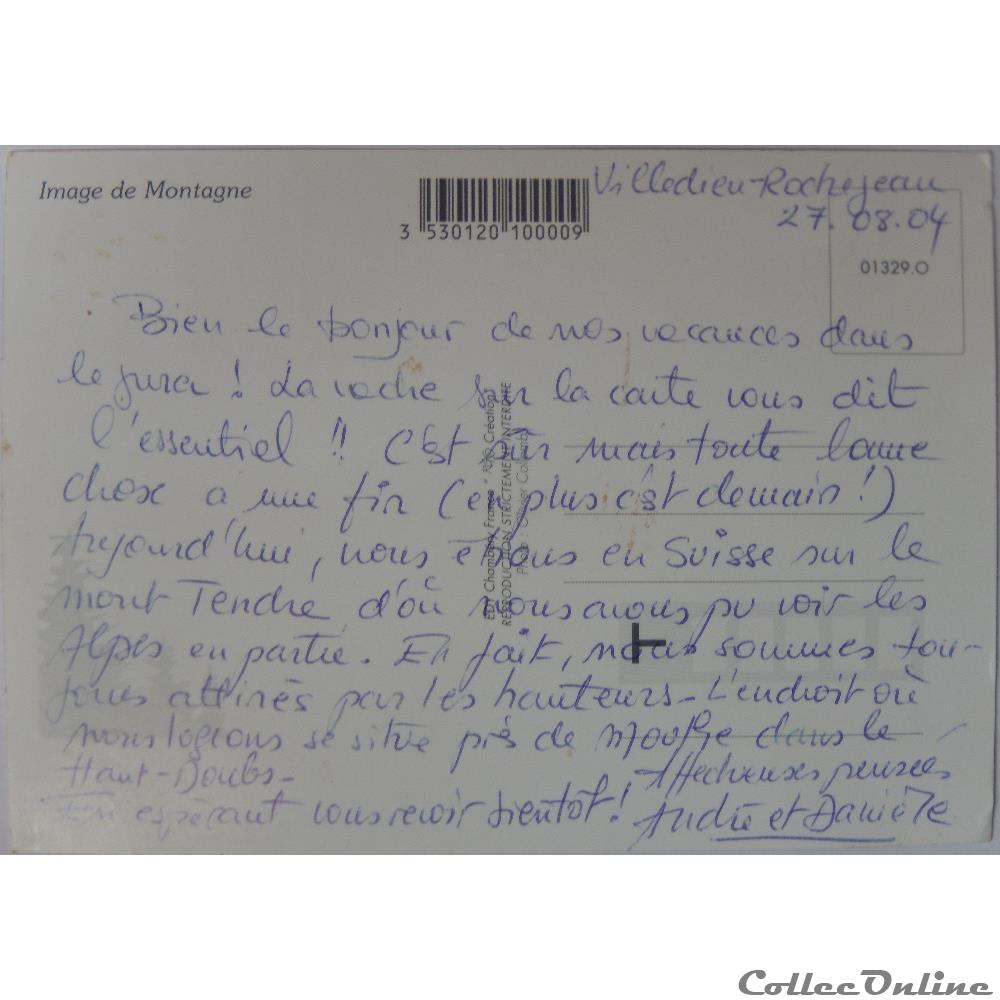 Image de Montagne
3 530120 100009
Villedieu-Rochejean
27.08.04
01329.O
Bien le bonjour de nos vacances dans
le jura ! La vache sur la carte vous dit
l'essentiel !! C'est sûr mais toute bonne
chose a une fin (en plus c'est demain !)
Aujourd'hui, nous étions en Suisse sur le
mont Tendre d'où nous avons pu voir les
Alpes en partie. En fait, nous sommes tou-
jours attirés par les hauteurs - L'endroit où
nous logions se situe près de Mouthe dans le
Haut-Doubs -
Affectueuses pensées
En espérant vous revoir bientôt !
André et Danièle
EDY Chambéry France * Pôle Créations
REPRODUCTION STRICTEMENT INTERDITE
Photo : Olivier
CollecOnline